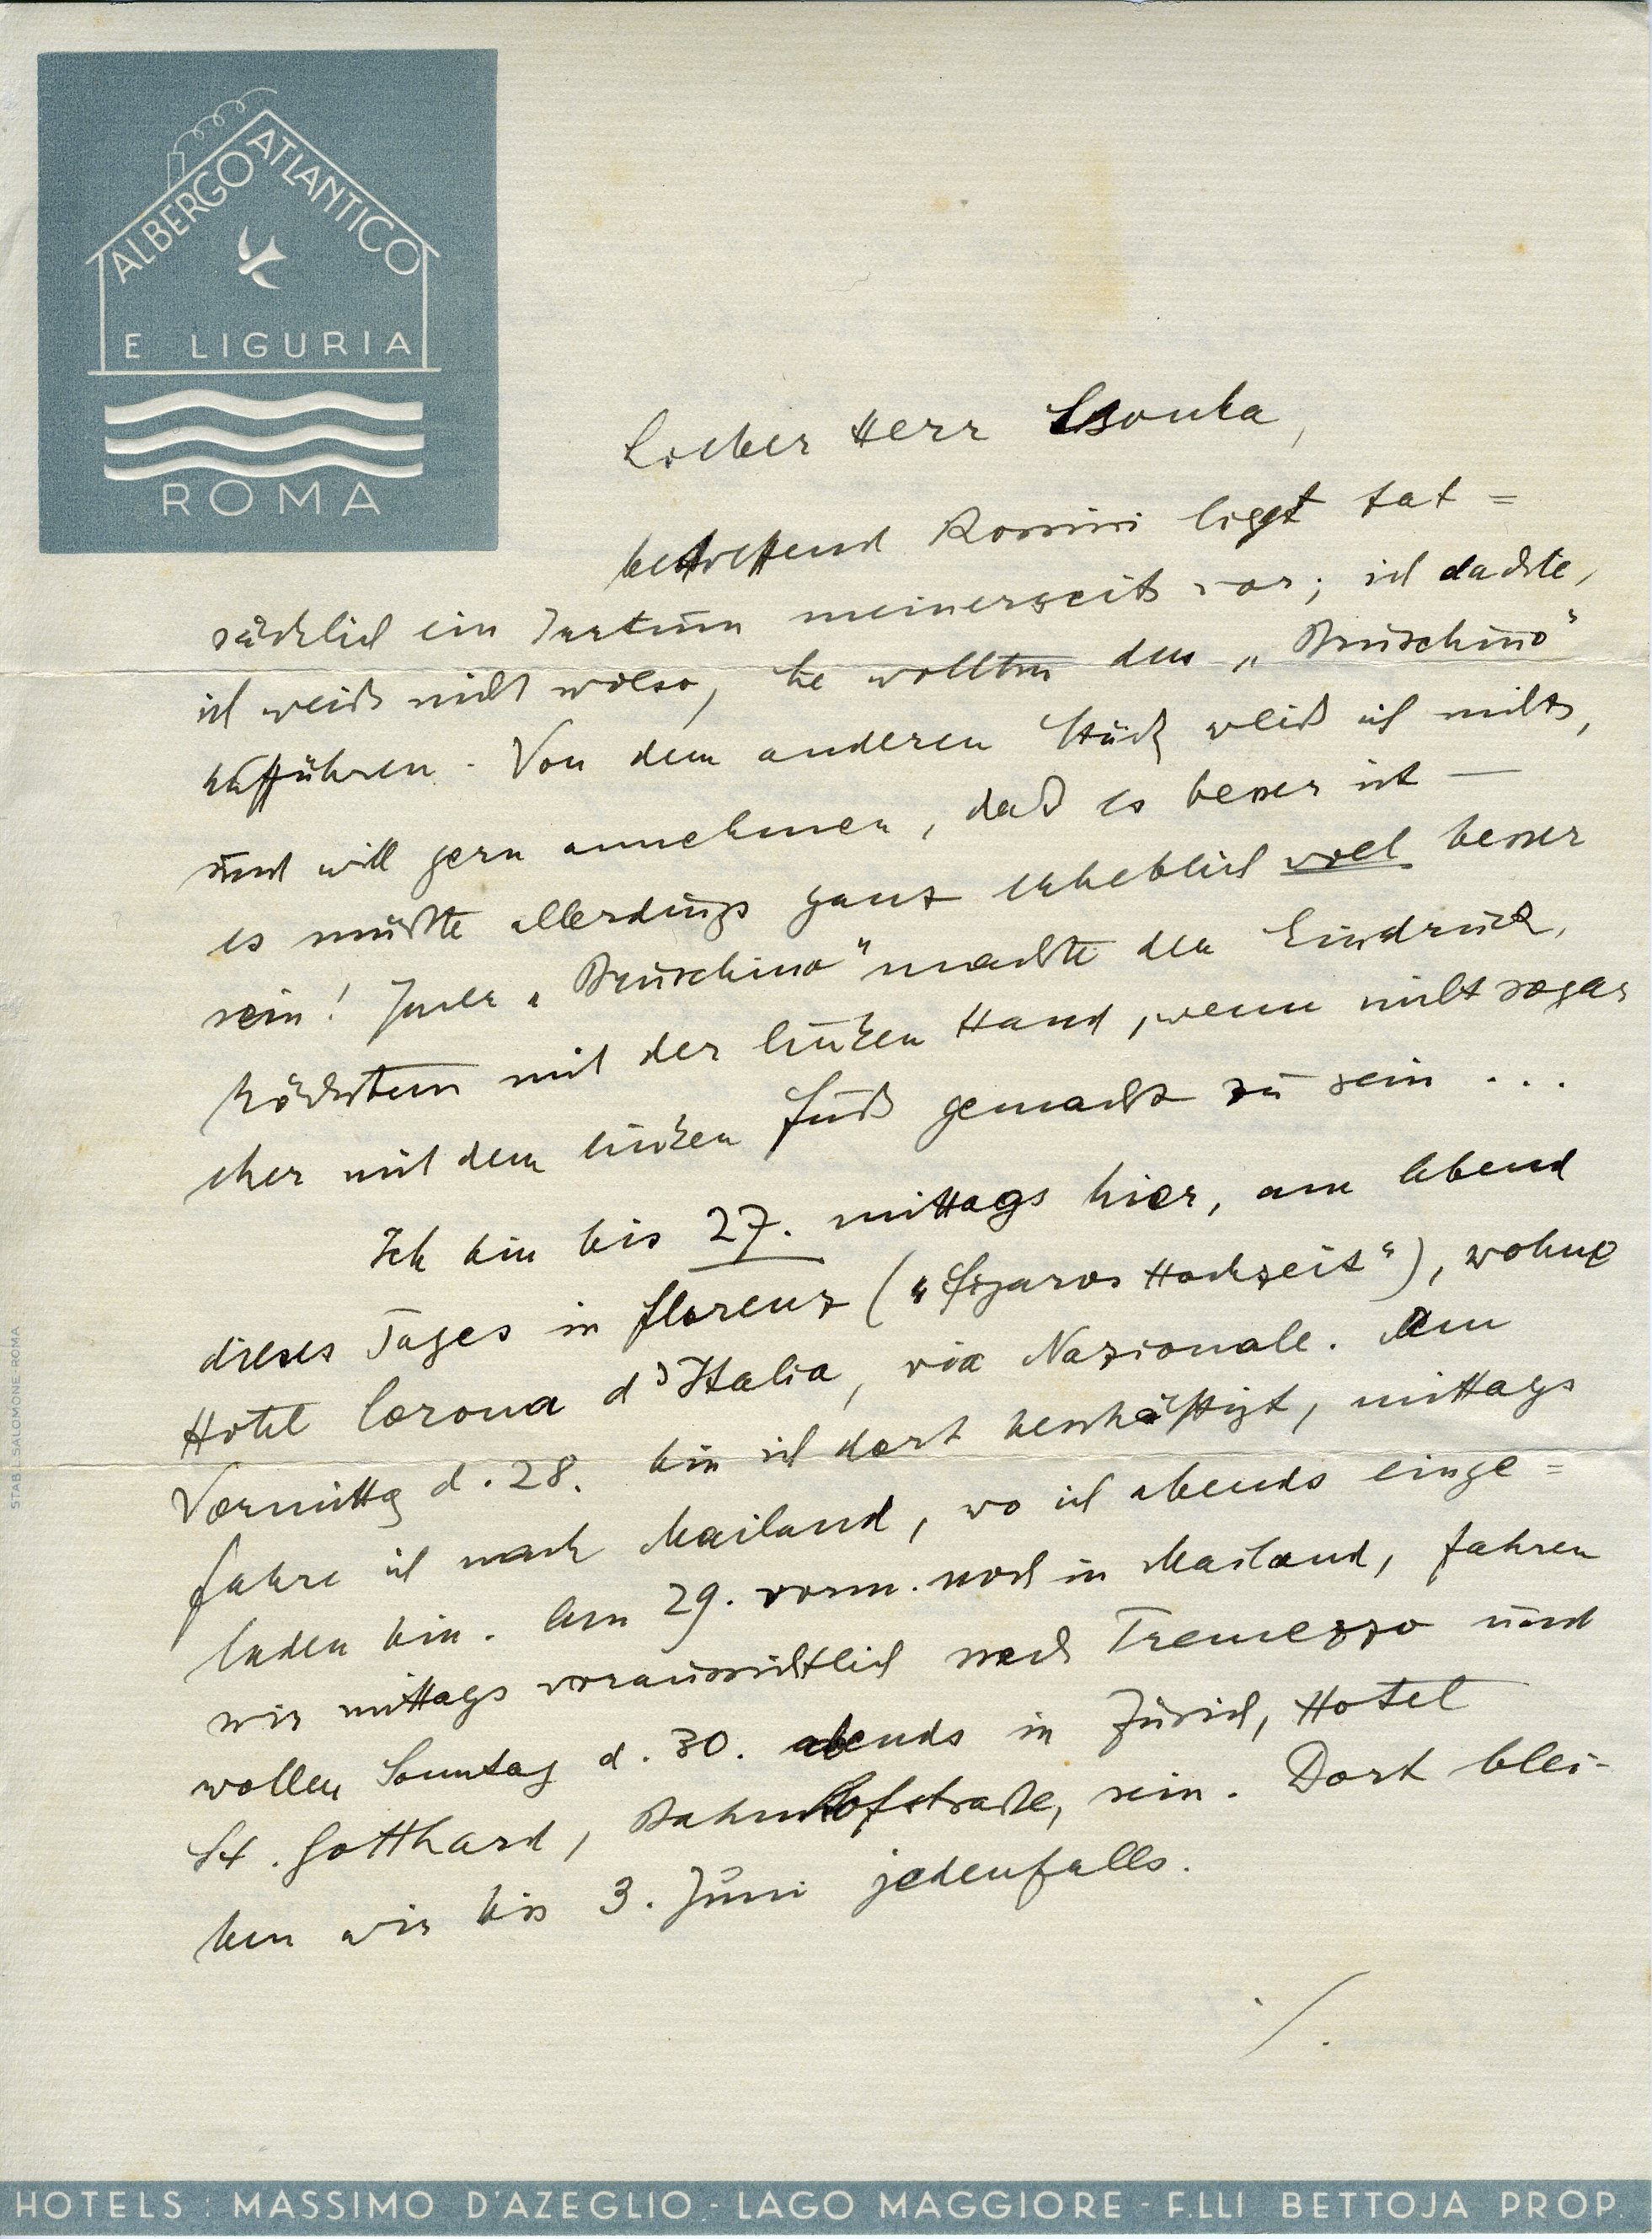 ALBERGO ATLANTICO
E LIGURIA
ROMA
Lieber Herr Csonka,
betreffend Rossini liegt tat=
sächlich ein Irrtum meinerseits vor; ich dachte,
ich weiß nicht wieso, Sie wollten den „Bruschino"
aufführen. Von dem anderen Stück weiß ich nichts,
und will gern annehmen, daß es besser ist —
es müßte allerdings ganz erheblich viel besser
sein! Jener „Bruschino" machte den Eindruck,
höchstens mit der linken Hand, wenn nicht sogar
eher mit dem linken Fuß gemacht zu sein ...
Ich bin bis 27. mittags hier, am Abend
dieses Tages in Florenz („Figaros Hochzeit"), wohne
Hotel Corona d'Italia, via Nazionale. Am
Vormittg d. 28. bin ich dort beschäftigt, mittags
fahre ich nach Mailand, wo ich abends einge=
laden bin. Am 29. vorm. noch in Mailand, fahren
wir mittags voraussichtlich nach Tremezzo und
wollen Sonntag d. 30. abends in Zürich, Hotel
St. Gotthard, Bahnhofstraße, sein. Dort blei-
ben wir bis 3. Juni jedenfalls.
./.
STAB. L. SALOMONE-ROMA
HOTELS : MASSIMO D'AZEGLIO - LAGO MAGGIORE - F.LLI BETTOJA PROP.